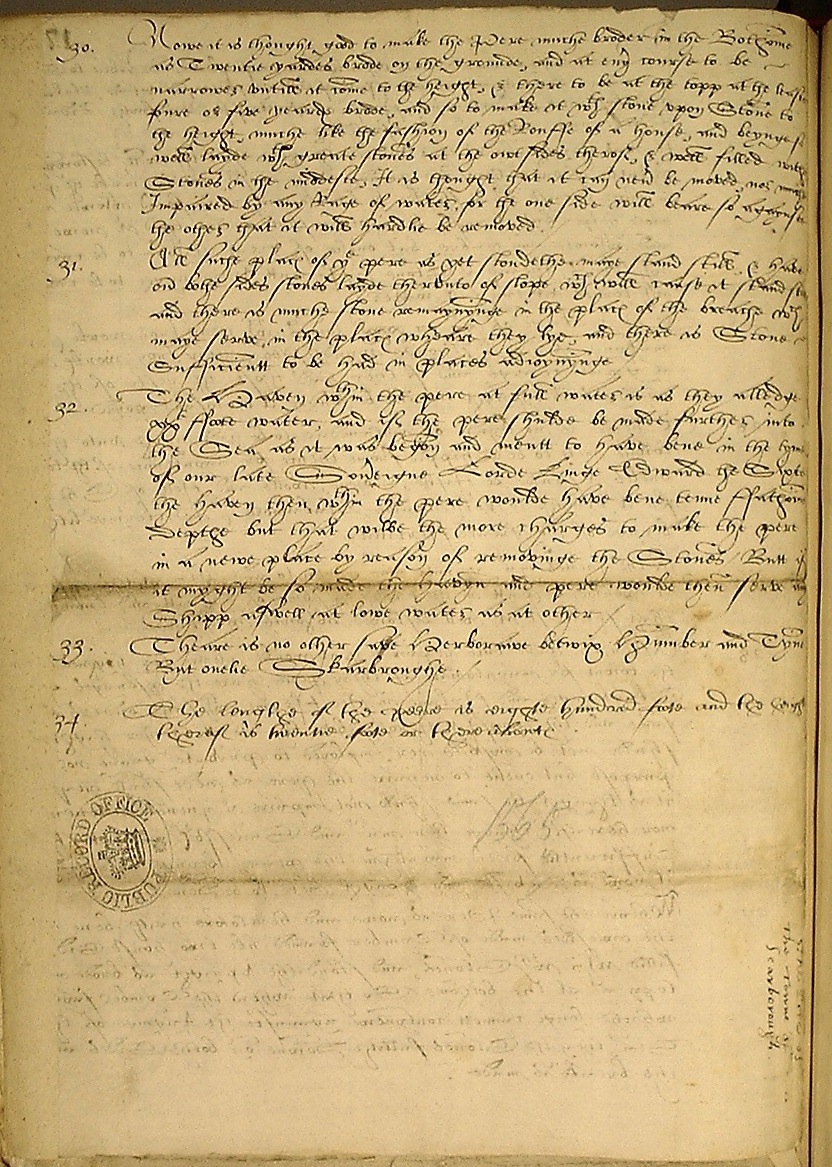 30. Nowe it is thought good to make the Pere muche broder in the Bothome
as Twentie yardes brode on the grounde, and at eny course to be
narrower untill it come to the height, & there to be at the topp at the least
foure or fyve yeards brode, and so to make it wth stone upon Stone to
the height, muche like the fashion of the Rouffe of a house, and beynge so
well laide wth greate stones at the owtsides therof, & well filled with
Stones in the middeste, It is thought that it cannot be moved, nor
Impaired by any Rage of water, for the one side will beare so against
the other that it will hardlie be removed.
31. All suche places of ye pere as yet stondethe maye stand still, & have
on bothe sides stones laide therunto of slope, wch will cause it stand
and there is muche stone remayninge in the places of the breache wch
maye serve, in the places wheare they lye, and there is Stone
Sufficientt to be had in places adioyninge
32. The Haven wthin the pere at full water is as they alledge
xx foote water, and if the pere shulde be made further into
the Sea as it was begon and mentt to have bene in the tyme
of our late Soveigne Lorde Kinge Edward the Sixte
the haven then wthin the pere woulde have bene tenne ffathom
Depthe but that wilbe the more charges to make the pere
in a newe place by reason of removinge the Stones But if
it myght be so made the havyn and pere woulde then serve any
Shipp aswell at lowe water as at other
33. Theare is no other save Herborawe betwix Humber and Tyne
But onelie Skarbroughe.
34. The lengthe of the peere is eighte hundred foote and the
therof is twentie foote or thereaboute
1565
PUBLIC RECORD OFFICE
the towne of
Scarborough